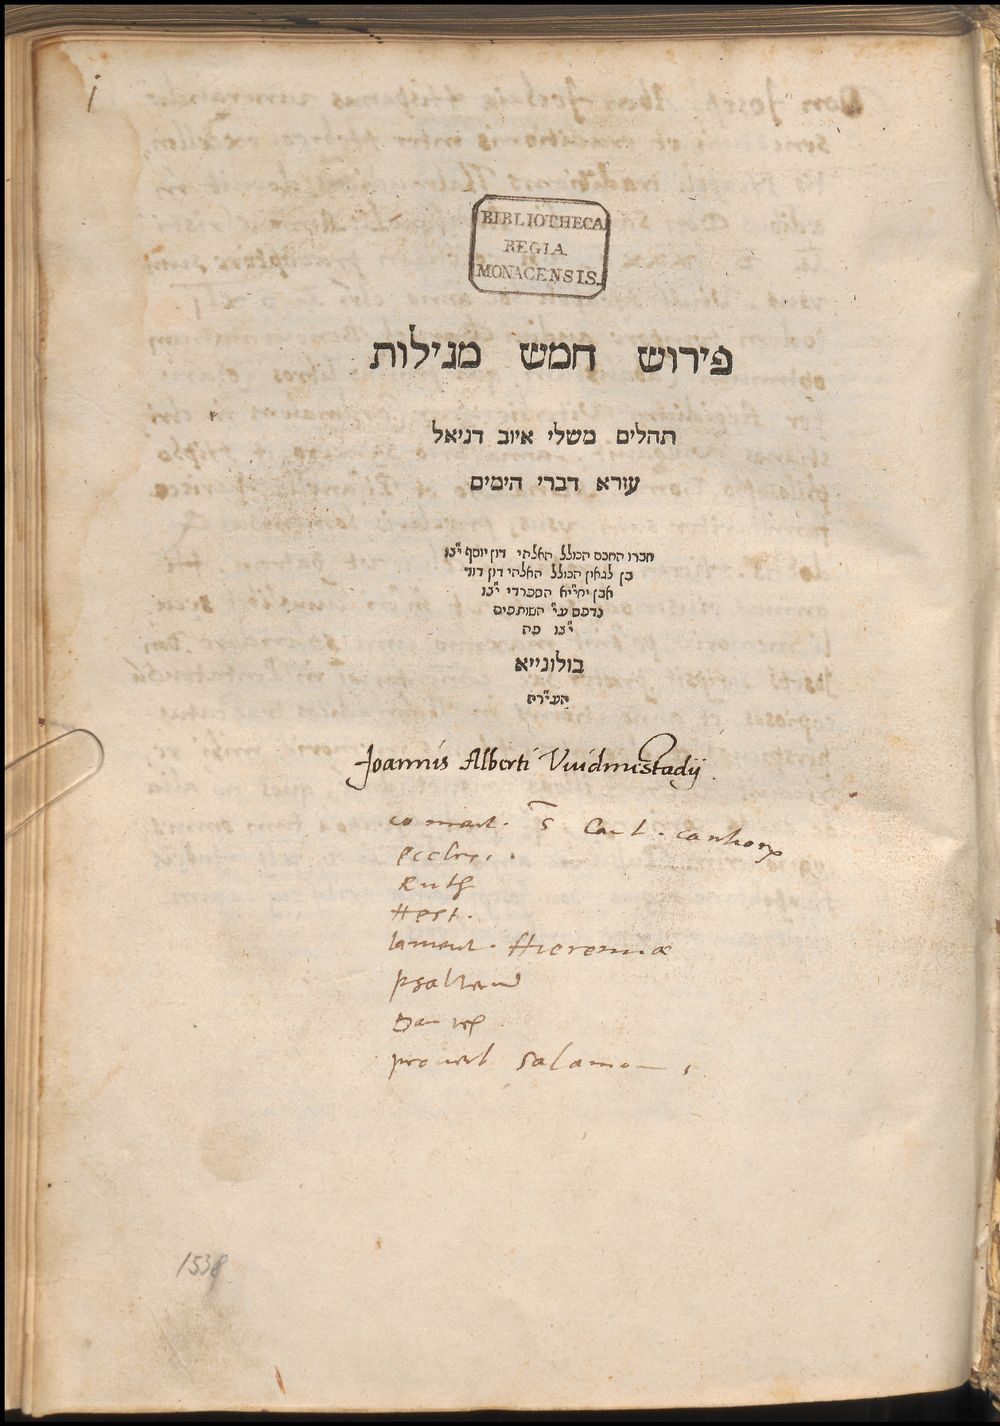 i
BIBLIOTHECA
REGIA
MONACENSIS.
פירוש חמש מגילות
תהלים משלי איוב דניאל
עזרא דברי הימים
חברו החכם הכולל האלהי דון יוסף י"צו
בן לגאון הכולל האלהי דון דוד
אבן יחייא הספרדי י"צו
נדפס ע"י השותפים
י"צו פה
בולונייא
הע"רח
Joannis Alberti Vuidmestadij
coment. s. Cant. canticorum
Eccles.
Ruth
Hest.
lament. Hieremiæ
psalterium
Daniel
proverb Salamon
1538